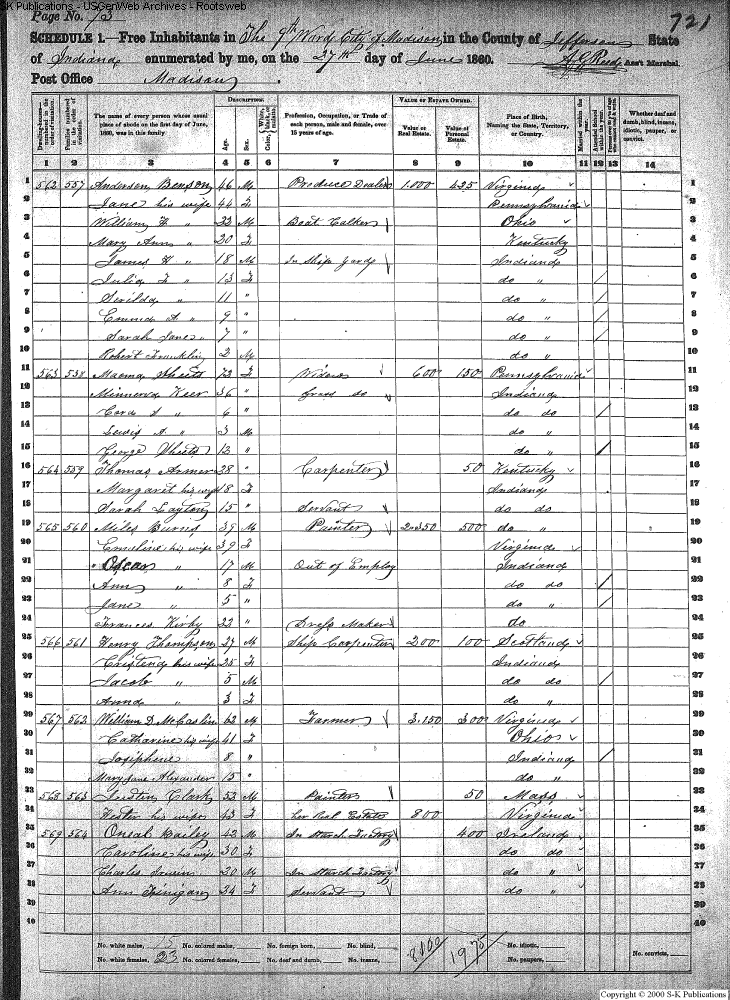 S-K Publications - USGenWeb Archives - Rootsweb
Page No. 73 721
SCHEDULE 1.—Free Inhabitants in The 7th Ward City of Madison in the County of Jefferson State
of Indiana enumerated by me, on the 27th day of June 1860. Ass't Marshal.
Post Office Madison
DESCRIPTION. VALUE OF ESTATE OWNED.
Dwelling-houses—numbered in the order of visitation. Families numbered in the order of visitation. The name of every person whose usual place of abode on the first day of June, 1860, was in this family. Age. Sex. Color, Profession, Occupation, or Trade of each person, male and female, over 15 years of age. Value of Real Estate. Value of Personal Estate. Place of Birth, Naming the State, Territory, or Country. Married within the year. Whether deaf and dumb, blind, insane, idiotic, pauper, or convict.
1 2 3 4 5 6 7 8 9 10 11 12 13 14
1 562 557 Anderson Benson 46 M Produce Dealer 1.000 425 Virginia 1
2 Jane his wife 44 F Pennsylvania 2
3 William H " 22 M Boat Calker Ohio 3
4 Mary Ann " 20 F Kentucky 4
5 James H " 18 M In Ship Yard Indiana 5
6 Julia F " 13 F do " 6
7 " 11 " do " 7
8 Emma A " 9 " do " 8
9 Sarah Jane " 7 " do " 9
10 Robert Franklin 2 M do " 10
11 563 558 Sheets 72 F Widow 600 150 Pennsylvania 11
12 Minnerva Keer 36 " Grass do Indiana 12
13 Cora " 6 " do do 13
14 Lewis A. " 3 M do " 14
15 George Sheets 12 " do " 15
16 564 559 Thomas Armer 28 " Carpenter 50 Kentucky 16
17 Margaret his wife 18 F Indiana 17
18 Sarah Layton 15 " Servant do do 18
19 565 560 Miles Burns 39 M Painter 2.350 500 do " 19
20 Emeline his wife 39 F Virginia 20
21 " Oscar " 17 M Out of Employ Indiana 21
22 Ann " 8 F do do 22
23 Jane " 5 " do " 23
24 Frances Kirby 22 " Dress Maker do 24
25 566 561 Henry Thompson 27 M Ship Carpenter 200 100 Scotland 25
26 his wife 25 F Indiana 26
27 Jacob " 5 M do do 27
28 Anna " 3 F do " 28
29 567 562 William D. McCaslin 62 M Farmer 3.150 300 Virginia 29
30 Catharine his wife 41 F Ohio 30
31 Josephine 8 " Indiana 31
32 Mary Jane Alexander 15 " do " 32
33 568 563 Clark 53 M Painter 50 Mass 33
34 Hester his wife 43 F her Real Estate 800 Virginia 34
35 569 564 Bailey 42 M In Starch Factory 400 Ireland 35
36 Caroline his wife 30 F do do 36
37 Charles Irwin 20 M In Starch Factory do " 37
38 Ann Finigan 34 F Servant do " 38
39 39
40 40
No. white males, 15 No. colored males, No. foreign born, No. blind, 8100 1975 No. idiotic, No. convicts,
No. white females, 23 No. colored females, No. deaf and dumb, No. insane, No. paupers,
Copyright © 2000 S-K Publications